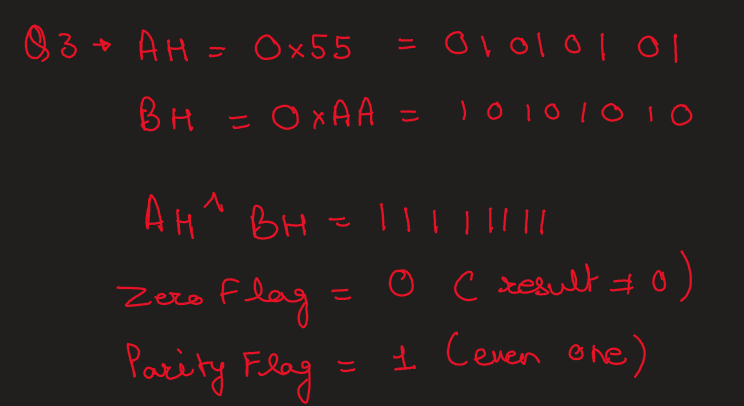 Q3 → AH = 0x55 = 01010101
BH = 0xAA = 10101010
AH ^ BH = 11111111
Zero Flag = 0 ( result ≠ 0 )
Parity Flag = 1 (even one)